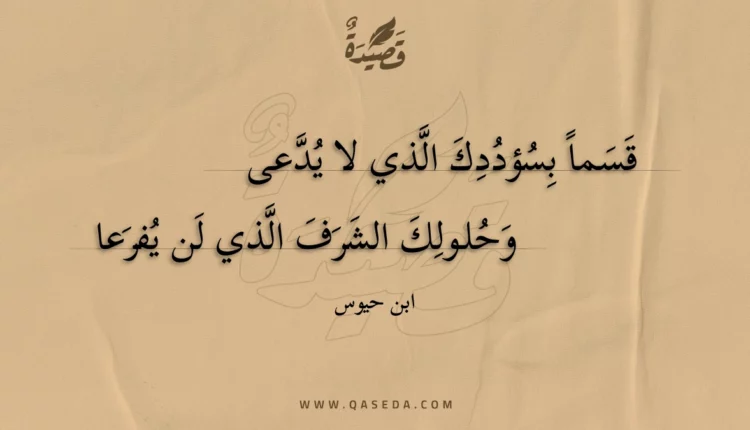 قَصِيدَةٌ
قَسَماً بِسُؤدُدِكَ الَّذي لا يُدَّعى
وَحُلولِكَ الشَرَفَ الَّذي لَن يُفرَعا
ابن حيوس
WWW.QASEDA.COM